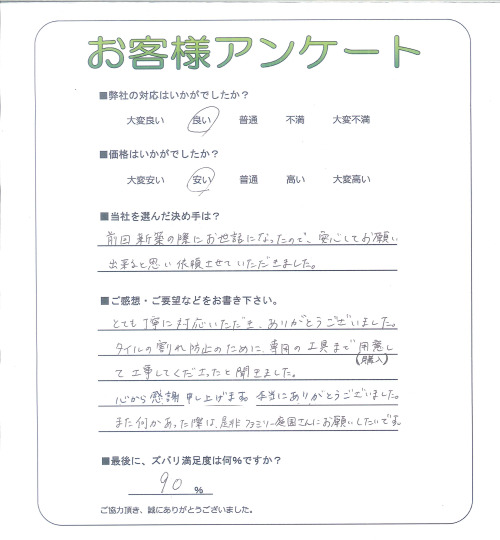 お客様アンケート
■弊社の対応はいかがでしたか？
大変良い 良い 普通 不満 大変不満
■価格はいかがでしたか？
大変安い 安い 普通 高い 大変高い
■当社を選んだ決め手は？
前回新築の際にお世話になったので、安心してお願い
出来ると思い依頼させていただきました。
■ご感想・ご要望などをお書き下さい。
とても丁寧に対応いただき、ありがとうございました。
タイルの割れ防止のために、専用の工具まで用意し
(購入)
て工事してくださったと聞きました。
心から感謝申し上げます。本当にありがとうございました。
また何かあった際は、是非ファミリー庭園さんにお願いしたいです。
■最後に、ズバリ満足度は何％ですか？
90 %
ご協力頂き、誠にありがとうございました。